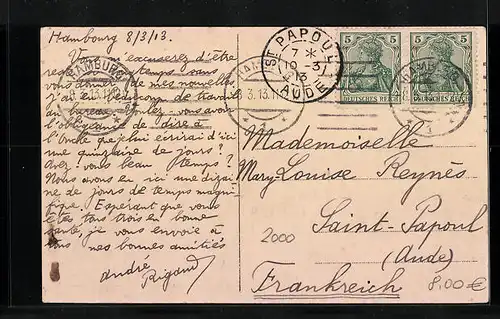 Hambourg 8/3/13.
Vous excuserez d'être
resté longtemps sans
vous donner de mes nouvelles
J'ai eu beaucoup de travail
au bureau. Voulez-vous avoir
l'obligeance de dire à
l'oncle que je lui écrirai d'ici
une quinzaine de jours?
Avez-vous beau temps?
Nous avons eu ici une dizai
ne de jours de temps magni
fique. Espérant que vous
êtes tous trois en bonne
santé, je vous envoie à
tous mes bonnes amitiés
André
Rigaud
HAMBURG
8.3.13.11
* 1 *
HAMBURG
3.13.11
* 1 *
ST PAPOUL
7 *
10 - 3
13
AUDE
5 5
DEUTSCHES REICH
5 5
DEUTSCHES REICH
HAMBURG
* 1 *
Mademoiselle
Mary-Louise Reynès
Saint-Papoul
(Aude)
Frankreich
2000
8,00 €